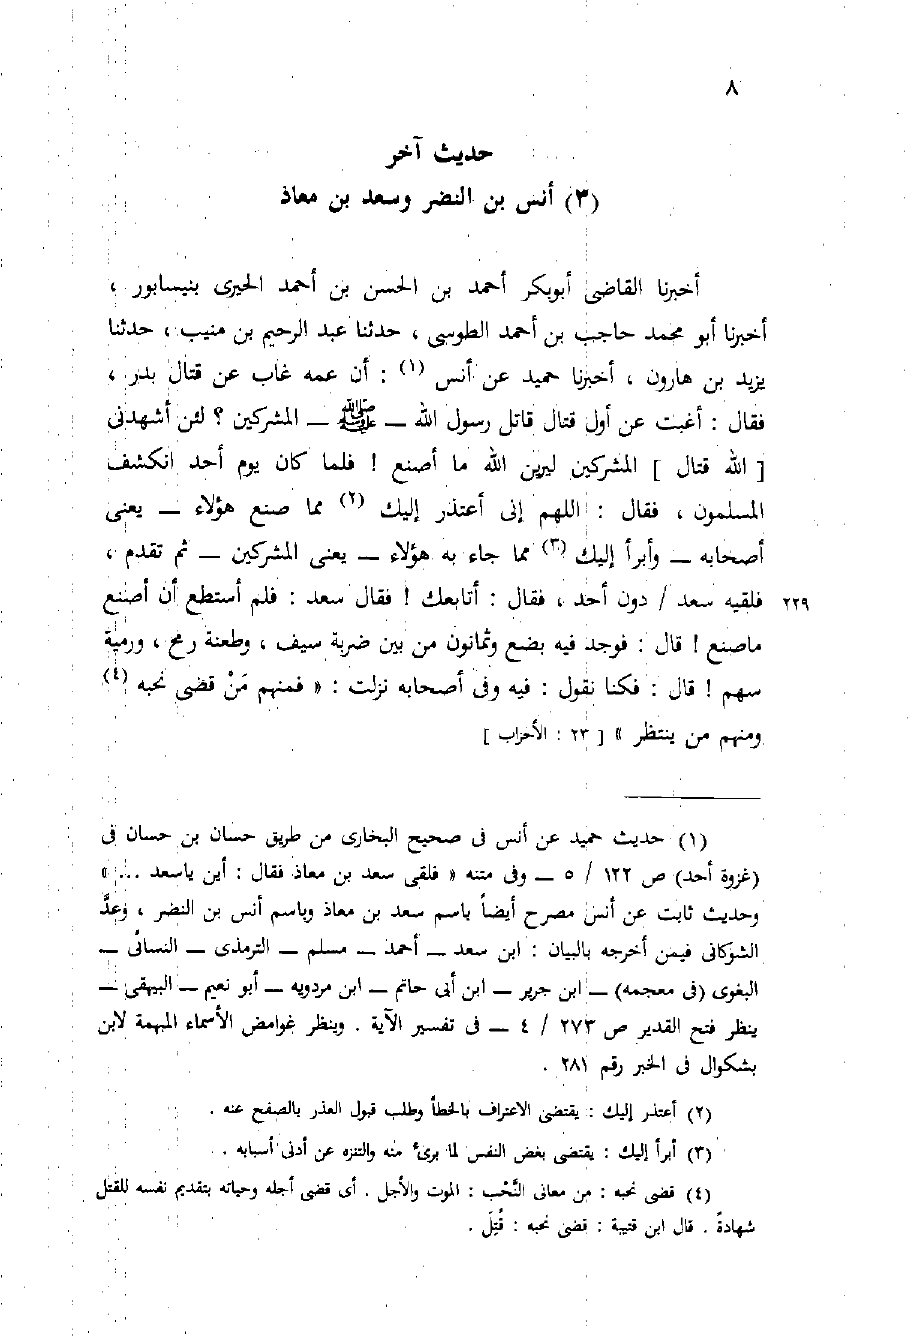 ٨
حديث آخر
(٣) أنس بن النضر وسعد بن معاذ
أخبرنا القاضى أبوبكر أحمد بن الحسن بن أحمد الحيرى بنيسابور ،
أخبرنا أبو محمد حاجب بن أحمد الطوسى ، حدثنا عبد الرحيم بن منيب ، حدثنا
يزيد بن هارون ، أخبرنا حميد عن أنس (١) : أن عمه غاب عن قتال بدر ،
فقال : أغبت عن أول قتال قاتل رسول الله ــ ﷺ ــ المشركين ؟ لئن أشهدنى
[ الله قتال ] المشركين ليرين الله ما أصنع ! فلما كان يوم أحد انكشف
المسلمون ، فقال : اللهم إنى أعتذر إليك (٢) مما صنع هؤلاء ــ يعنى
أصحابه ــ وأبرأ إليك (٣) مما جاء به هؤلاء ــ يعنى المشركين ــ ثم تقدم ،
فلقيه سعد / دون أحد ، فقال : أتابعك ! فقال سعد : فلم أستطع أن أصنع ٢٢٩
ماصنع ! قال : فوجد فيه بضع وثمانون من بين ضربة سيف ، وطعنة رمح ، ورمية
سهم ! قال : فكنا نقول : فيه وفى أصحابه نزلت : « فمنهم مَنْ قضى نحبه (٤)
ومنهم من ينتظر » [ ٢٣ : الأحزاب ]
(١) حديث حميد عن أنس فى صحيح البخارى من طريق حسان بن حسان فى
(غزوة أحد) ص ١٢٢ / ٥ ــ وفى متنه « فلقى سعد بن معاذ فقال : أين ياسعد ... »
وحديث ثابت عن أنس مصرح أيضاً باسم سعد بن معاذ وباسم أنس بن النضر ، وعدَّ
الشوكانى فيمن أخرجه بالبيان : ابن سعد ــ أحمد ــ مسلم ــ الترمذى ــ النسائى ــ
البغوى (فى معجمه) ــ ابن جرير ــ ابن أبى حاتم ــ ابن مردويه ــ أبو نعيم ــ البيهقى ــ
ينظر فتح القدير ص ٢٧٣ / ٤ ــ فى تفسير الآية . وينظر غوامض الأسماء المبهمة لابن
بشكوال فى الخبر رقم ٢٨١ .
(٢) أعتذر إليك : يقتضى الاعتراف بالخطأ وطلب قبول العذر بالصفح عنه .
(٣) أبرأ إليك : يقتضى بغض النفس لما برىء منه والتنزه عن أدنى أسبابه .
(٤) قضى نحبه : من معانى النَّحْب : الموت والأجل . أى قضى أجله وحياته بتقديم نفسه للقتل
شهادةً . قال ابن قتيبة : قضى نحبه : قُتِلَ .